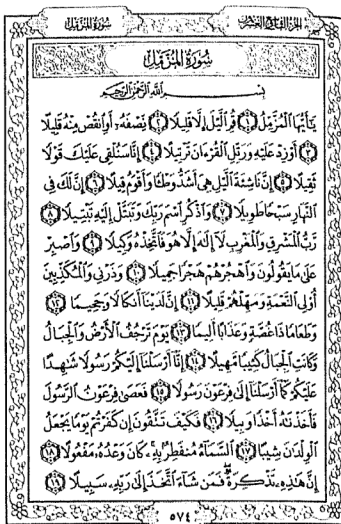 سُورَةُ الْمُزَّمِّلِ
الجزء التاسع والعشرون
سُورَةُ الْمُزَّمِّلِ
بِسْمِ اللَّهِ الرَّحْمَٰنِ الرَّحِيمِ
يَٰٓأَيُّهَا ٱلْمُزَّمِّلُ ١ قُمِ ٱلَّيْلَ إِلَّا قَلِيلًا ٢ نِّصْفَهُۥٓ أَوِ ٱنقُصْ مِنْهُ قَلِيلًا
٣ أَوْ زِدْ عَلَيْهِ وَرَتِّلِ ٱلْقُرْءَانَ تَرْتِيلًا ٤ إِنَّا سَنُلْقِى عَلَيْكَ قَوْلًا
ثَقِيلًا ٥ إِنَّ نَاشِئَةَ ٱلَّيْلِ هِىَ أَشَدُّ وَطْـًٔا وَأَقْوَمُ قِيلًا ٦ إِنَّ لَكَ فِى
ٱلنَّهَارِ سَبْحًا طَوِيلًا ٧ وَٱذْكُرِ ٱسْمَ رَبِّكَ وَتَبَتَّلْ إِلَيْهِ تَبْتِيلًا ٨
رَّبُّ ٱلْمَشْرِقِ وَٱلْمَغْرِبِ لَآ إِلَٰهَ إِلَّا هُوَ فَٱتَّخِذْهُ وَكِيلًا ٩ وَٱصْبِرْ
عَلَىٰ مَا يَقُولُونَ وَٱهْجُرْهُمْ هَجْرًا جَمِيلًا ١٠ وَذَرْنِى وَٱلْمُكَذِّبِينَ
أُو۟لِى ٱلنَّعْمَةِ وَمَهِّلْهُمْ قَلِيلًا ١١ إِنَّ لَدَيْنَآ أَنكَالًا وَجَحِيمًا ١٢
وَطَعَامًا ذَا غُصَّةٍ وَعَذَابًا أَلِيمًا ١٣ يَوْمَ تَرْجُفُ ٱلْأَرْضُ وَٱلْجِبَالُ
وَكَانَتِ ٱلْجِبَالُ كَثِيبًا مَّهِيلًا ١٤ إِنَّآ أَرْسَلْنَآ إِلَيْكُمْ رَسُولًا شَٰهِدًا
عَلَيْكُمْ كَمَآ أَرْسَلْنَآ إِلَىٰ فِرْعَوْنَ رَسُولًا ١٥ فَعَصَىٰ فِرْعَوْنُ ٱلرَّسُولَ
فَأَخَذْنَٰهُ أَخْذًا وَبِيلًا ١٦ فَكَيْفَ تَتَّقُونَ إِن كَفَرْتُمْ يَوْمًا يَجْعَلُ
ٱلْوِلْدَٰنَ شِيبًا ١٧ ٱلسَّمَآءُ مُنفَطِرٌۢ بِهِۦ كَانَ وَعْدُهُۥ مَفْعُولًا ١٨
إِنَّ هَٰذِهِۦ تَذْكِرَةٌ فَمَن شَآءَ ٱتَّخَذَ إِلَىٰ رَبِّهِۦ سَبِيلًا ١٩
٥٧٤